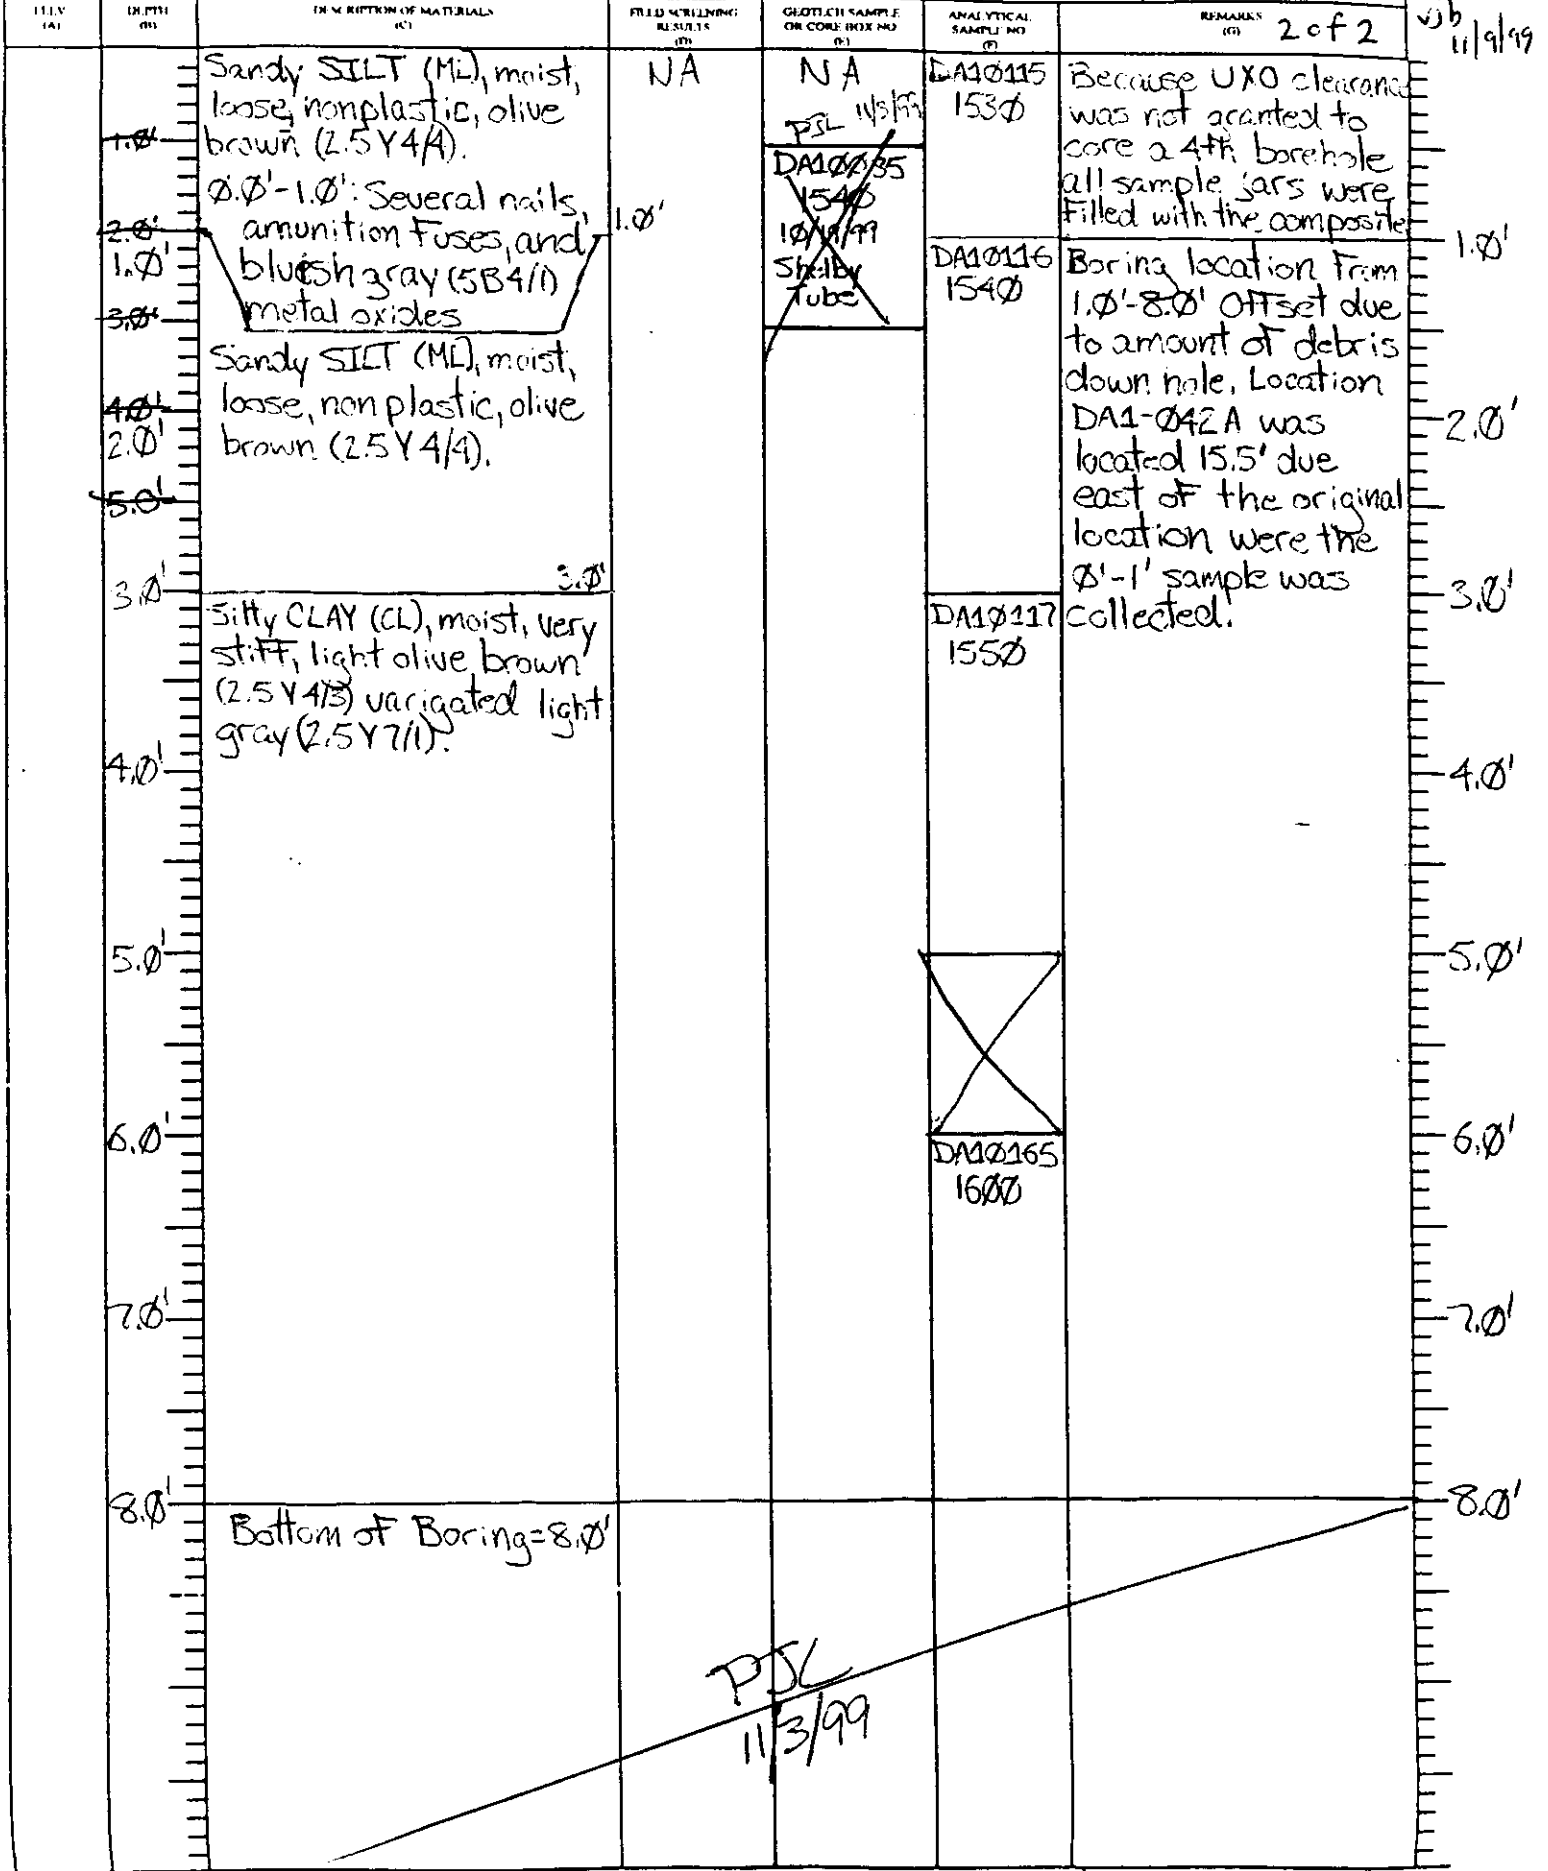 ELEV DEPTH DESCRIPTION OF MATERIALS FIELD SCREENING GEOTECH SAMPLE ANALYTICAL REMARKS 2 of 2
(A) (B) (C) RESULTS OR CORE BOX NO SAMPLE NO (G)
(D) (E) (F)
11/9/99
Sandy SILT (ML), moist,
loose, nonplastic, olive
brown (2.5Y4/4).
0.0'-1.0': Several nails,
amunition Fuses, and
bluish gray (5B4/1)
metal oxides
1.0'
Sandy SILT (ML), moist,
loose, non plastic, olive
brown (2.5Y4/4).
3.0'
Silty CLAY (CL), moist, very
stiff, light olive brown
(2.5Y4/3) varigated light
gray (2.5Y7/1).
Bottom of Boring=8.0'
1.0'
2.0'
1.0'
3.0'
4.0'
2.0'
5.0'
3.0'
4.0'
5.0'
6.0'
7.0'
8.0'
NA
NA
PJL 11/3/99
DA10035
1540
10/19/99
Shelby
Tube
DA10115
1530
DA10116
1540
DA10117
1550
DA10165
1600
Because UXO clearance
was not granted to
core a 4th borehole
all sample jars were
filled with the composite
Boring location From
1.0'-8.0' Offset due
to amount of debris
down hole. Location
DA1-042A was
located 15.5' due
east of the original
location were the
0'-1' sample was
collected.
1.0'
2.0'
3.0'
4.0'
5.0'
6.0'
7.0'
8.0'
PJL
11/3/99